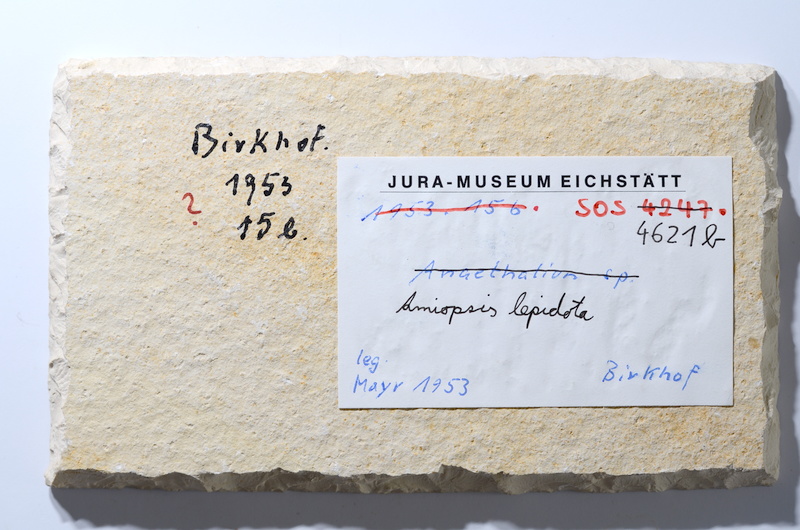 Birkhof.
1953
?
15 b.
JURA-MUSEUM EICHSTÄTT
1953. 15b. SOS 4247.
4621b
Anaethalion sp.
Amiopsis lepidota
leg.
Mayr 1953 Birkhof